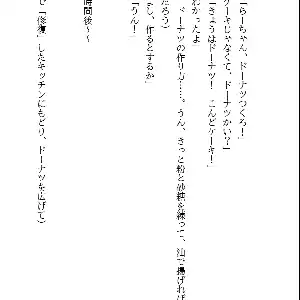 「らーちゃん、ドーナツつくろ！」
ケーキじゃなくて、ドーナツかい？」
「きょうはドーナツ！　こんどケーキ！」
わかったよ」
だろう）
ドーナツの作り方……。うん、きっと粉と砂糖を練って、油で揚げれば
よし、作るとするか」
「うん！」
時間後～～
で「修復」したキッチンにもどり、ドーナツを広げて）